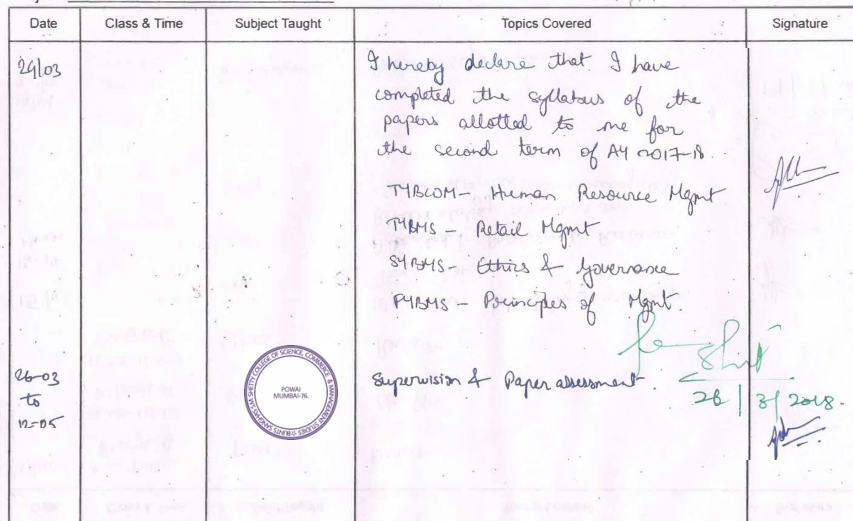 Date Class & Time Subject Taught Topics Covered Signature
24/03 I hereby declare that I have
completed the syllabus of the
papers allotted to me for
the second term of AY 2017-18.
TYBCOM - Human Resource Mgmt
TYBMS - Retail Mgmt
SYBMS - Ethics & Governance
FYBMS - Principles of Mgmt.
26-03 Supervision & Paper assessment.
to
12-05
26/3/2018.
SHETTY COLLEGE OF SCIENCE, COMMERCE & MANAGEMENT STUDIES
POWAI
MUMBAI-76.